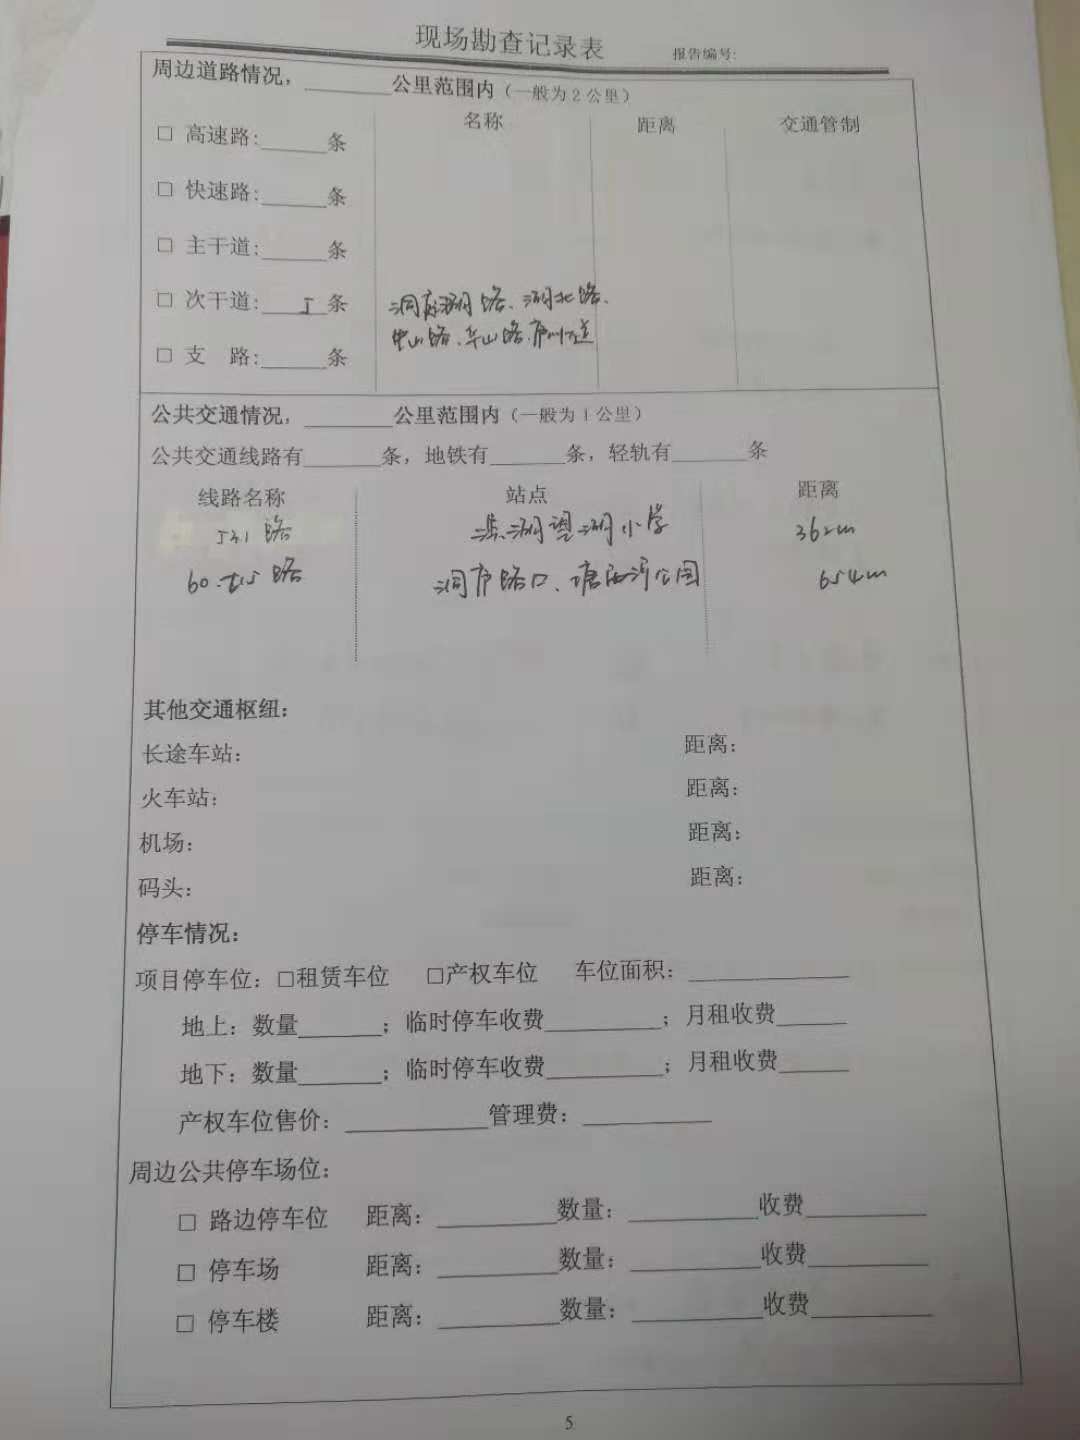 现场勘查记录表
报告编号:
周边道路情况，________公里范围内（一般为2公里）
名称 距离 交通管制
□ 高速路:______条
□ 快速路:______条
□ 主干道:______条
□ 次干道: 5 条 洞庭湖路、湖北路、
中山路、华山路、庐州大道
□ 支 路:______条
公共交通情况，________公里范围内（一般为1公里）
公共交通线路有_______条，地铁有_______条，轻轨有_______条
线路名称 站点 距离
路 滨湖望湖小学 362m
路 洞庭路口、塘西河公园 654m
其他交通枢纽：
长途车站： 距离：
火车站： 距离：
机场： 距离：
码头： 距离：
停车情况：
项目停车位：□租赁车位 □产权车位 车位面积：______________
地上：数量_______；临时停车收费__________；月租收费______
地下：数量_______；临时停车收费__________；月租收费______
产权车位售价：____________管理费：___________
周边公共停车场位：
□ 路边停车位 距离：__________数量：___________收费__________
□ 停车场 距离：__________数量：___________收费__________
□ 停车楼 距离：__________数量：___________收费__________
5